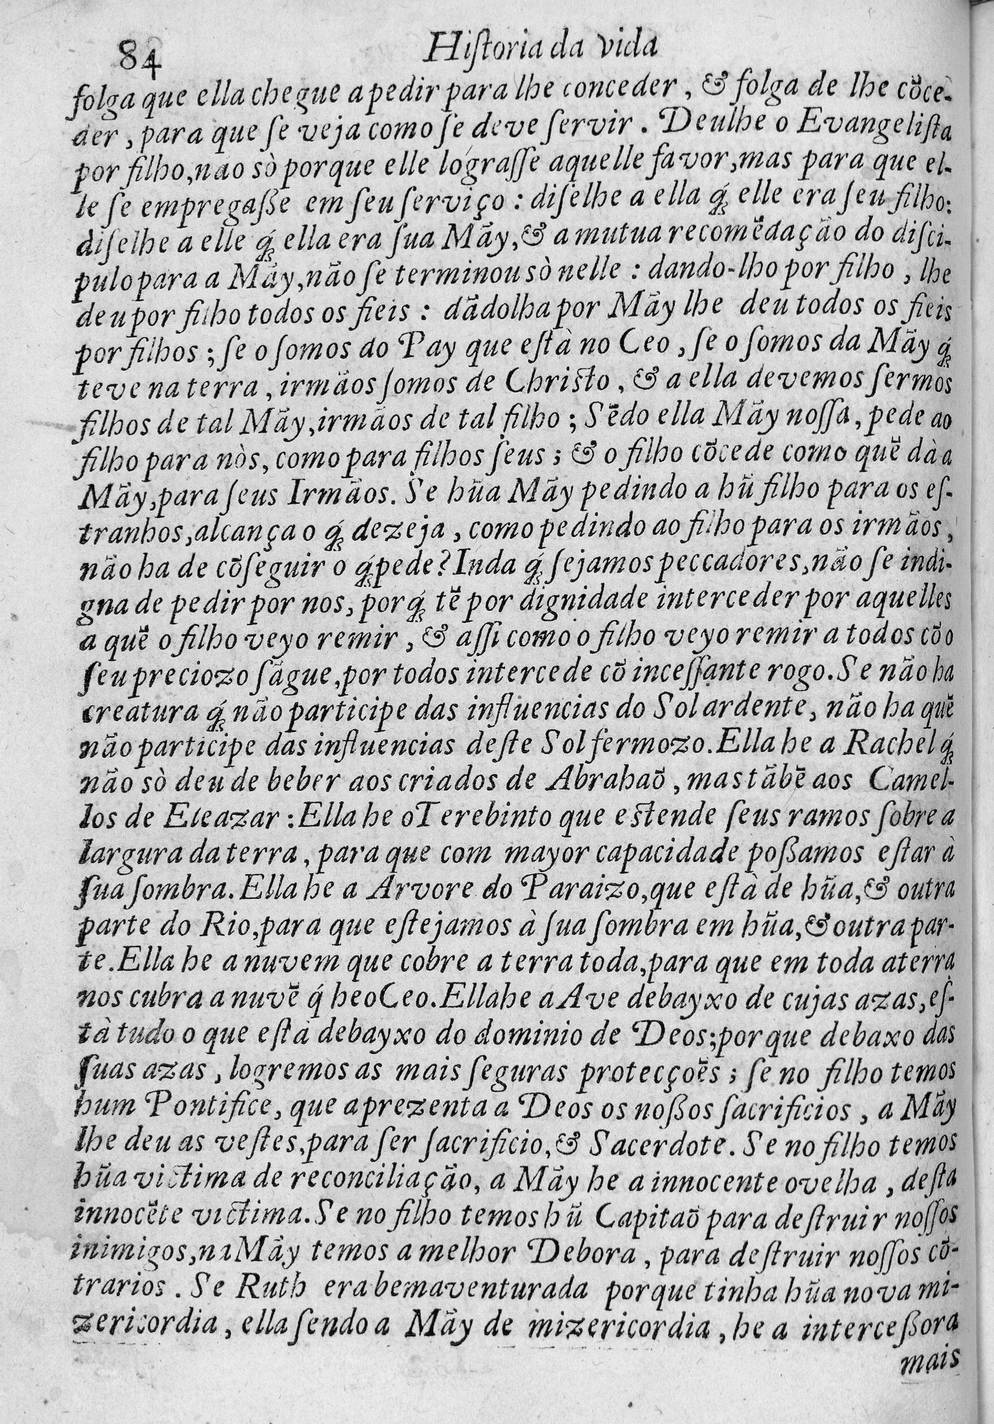 84 Hiſtoria da vida
folga que ella chegue a pedir para lhe conceder, & folga de lhe cõce-
der, para que ſe veja como ſe deve ſervir. Deulhe o Evangeliſta
por filho, nao sò porque elle lograſſe aquelle favor, mas para que el-
le ſe empregaße em ſeu ſerviço: diſelhe a ella q́ elle era ſeu filho:
diſelhe a elle q́ ella era ſua Mãy, & a mutua recomẽdação do diſci-
pulo para a Mãy, não ſe terminou sò nelle: dando-lho por filho, lhe
deu por filho todos os fieis: dãdolha por Mãy lhe deu todos os fieis
por filhos; ſe o ſomos do Pay que eſtà no Ceo, ſe o ſomos da Mãy q́
teve na terra, irmãos ſomos de Chriſto, & a ella devemos ſermos
filhos de tal Mãy, irmãos de tal filho; Sẽdo ella Mãy noſſa, pede ao
filho para nòs, como para filhos ſeus; & o filho cõcede como quẽ dà a
Mãy, para ſeus Irmãos. Se hũa Mãy pedindo a hũ filho para os eſ-
tranhos, alcança o q́ dezeja, como pedindo ao filho para os irmãos,
não ha de cõſeguir o q́ pede? Inda q́ ſejamos peccadores, não ſe indi-
gna de pedir por nos, porq́ tẽ por dignidade interceder por aquelles
a quẽ o filho veyo remir, & aſſi como o filho veyo remir a todos cõ o
ſeu preciozo ſãgue, por todos intercede cõ inceſſante rogo. Se não ha
creatura q́ não participe das influencias do Sol ardente, não ha quẽ
não participe das influencias deſte Sol fermozo. Ella he a Rachel q́
não sò deu de beber aos criados de Abrahaõ, mas tãbẽ aos Camel-
los de Eleazar: Ella he o Terebinto que eſtende ſeus ramos ſobre a
largura da terra, para que com mayor capacidade poßamos eſtar à
ſua ſombra. Ella he a Arvore do Paraizo, que eſtà de hũa, & outra
parte do Rio, para que eſtejamos à ſua ſombra em hũa, & outra par-
te. Ella he a nuvem que cobre a terra toda, para que em toda a terra
nos cubra a nuvẽ q́ he o Ceo. Ella he a Ave debayxo de cujas azas, eſ-
tà tudo o que eſtà debayxo do dominio de Deos; porque debaxo das
ſuas azas, logremos as mais ſeguras protecçoẽs; ſe no filho temos
hum Pontifice, que aprezenta a Deos os noßos ſacrificios, a Mãy
lhe deu as veſtes, para ſer ſacrificio, & Sacerdote. Se no filho temos
hũa victima de reconciliação, a Mãy he a innocente ovelha, deſta
innocẽte victima. Se no filho temos hũ Capitaõ para deſtruir noſſos
inimigos, na Mãy temos a melhor Debora, para deſtruir noſſos cõ-
trarios. Se Ruth era bemaventurada porque tinha hũa nova mi-
zericordia, ella ſendo a Mãy de mizericordia, he a interceßora
mais